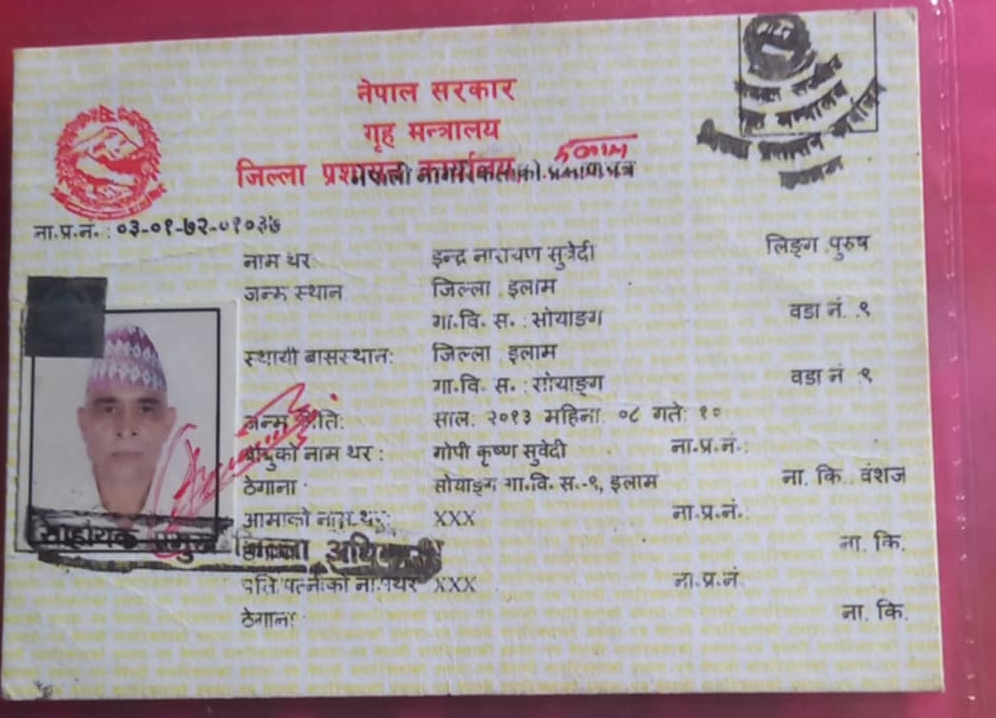 नेपाल सरकार
गृह मन्त्रालय
जिल्ला प्रशासन कार्यालय, इलाम
नेपाली नागरिकताको प्रमाणपत्र
ना.प्र.नं. : ०३-०१-७२-०१०३७
नाम थर इन्द्र नारायण सुवेदी लिङ्ग पुरुष
जन्म स्थान जिल्ला इलाम
गा.वि. स. : सोयाङग वडा नं. ९
स्थायी बासस्थान: जिल्ला इलाम
गा.वि. स. : सोयाङ्ग वडा नं ९
जन्म मिति: साल: २०१३ महिना: ०८ गते: १०
बाबुको नाम थर : गोपी कृष्ण सुवेदी ना.प्र.नं.:
ठेगाना : सोयाङ्ग गा.वि. स.-९, इलाम ना. कि.: वंशज
आमाको नाम थर: XXX ना.प्र.नं.:
सहायक प्रमुख जिल्ला अधिकारी
ना. कि.
पति/पत्नीको नाम थर XXX ना.प्र.नं.
ठेगाना: ना. कि.